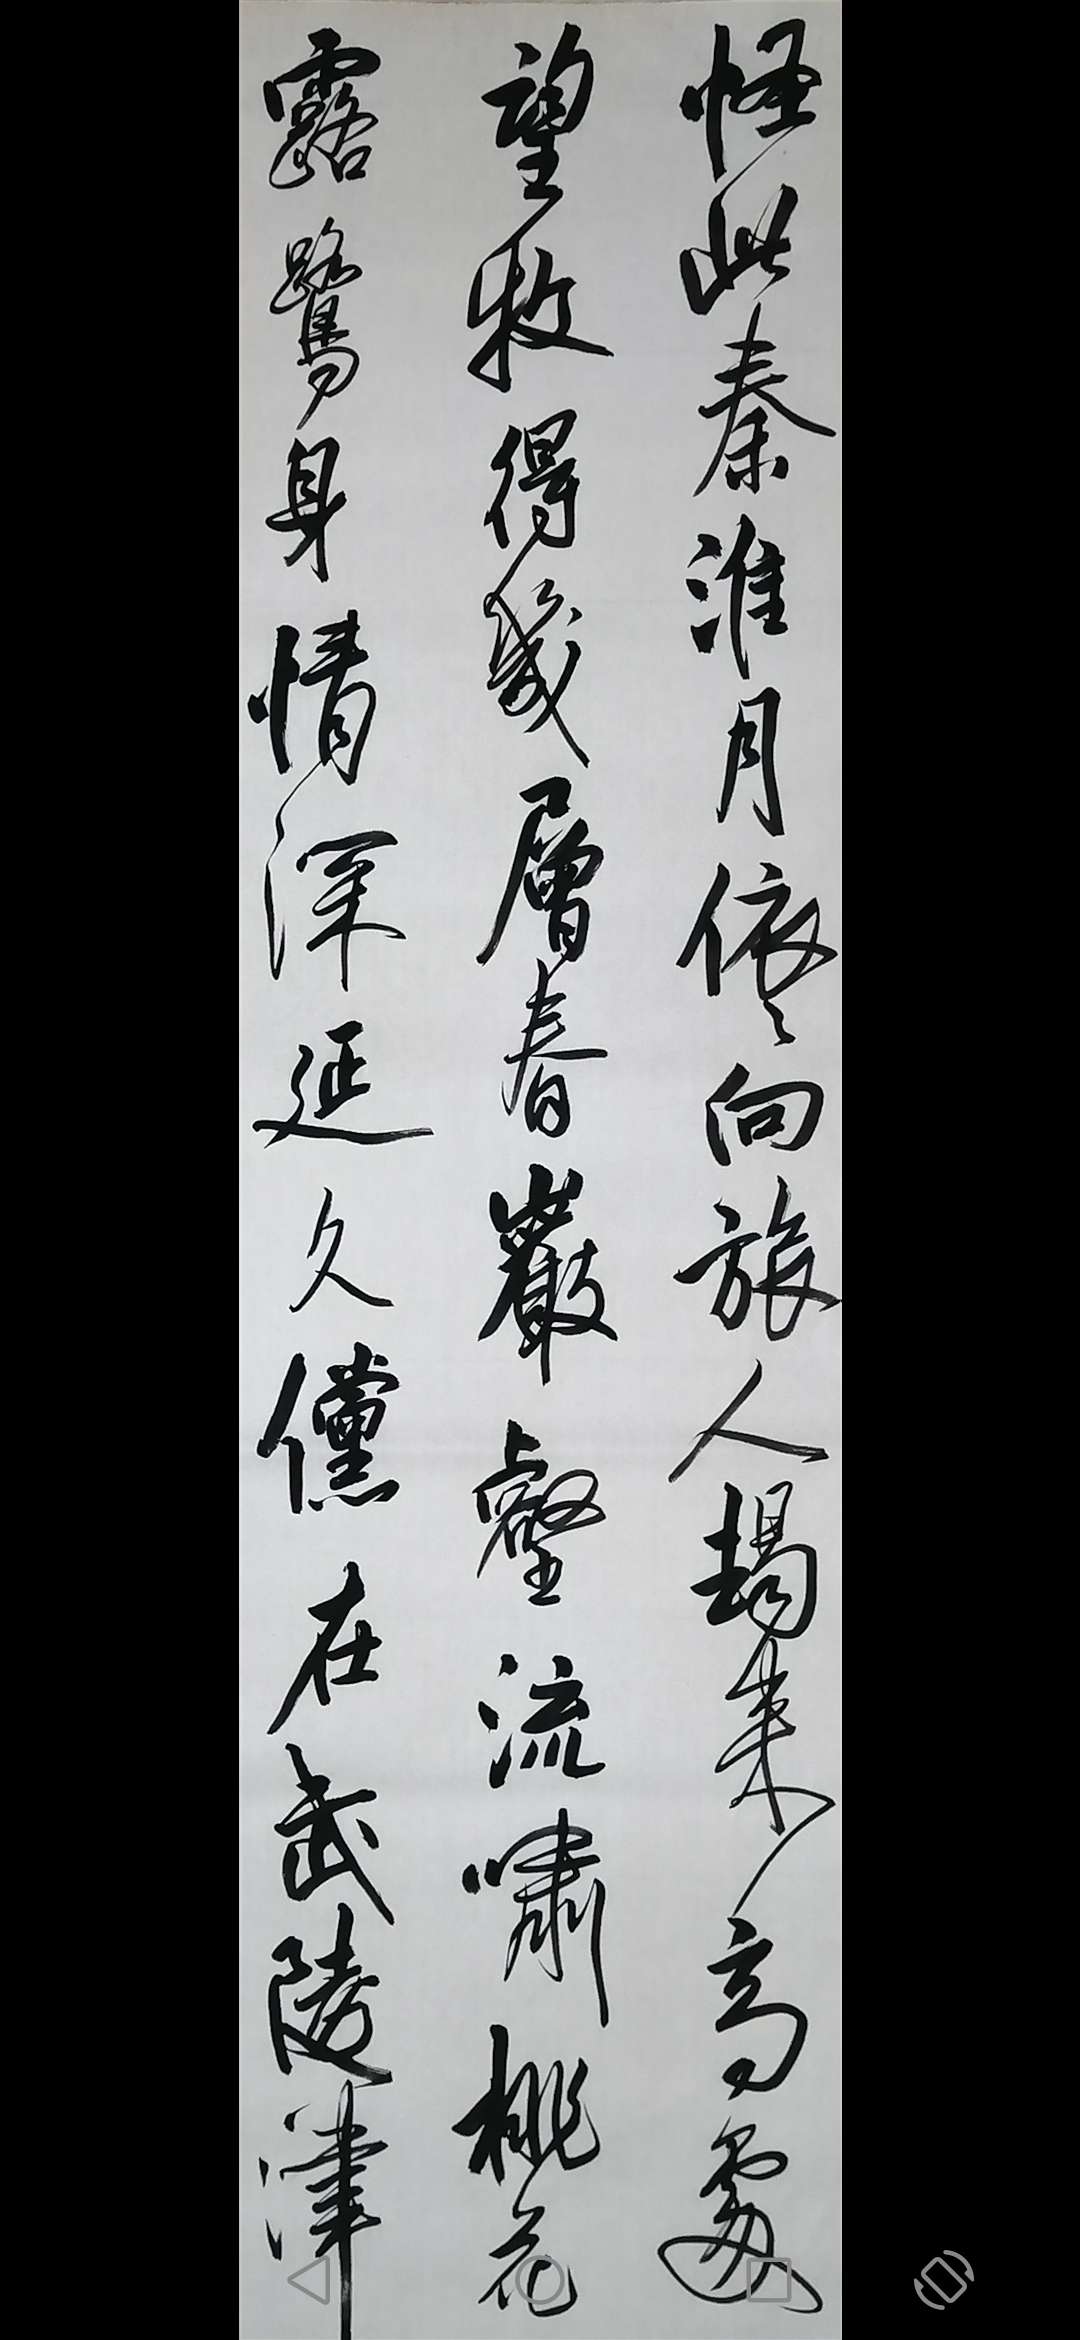 怪此秦淮月依依向旅人朅来高處
望收得幾層春巖壑流嘯桃花
露鷺身情深延久儻在武陵津